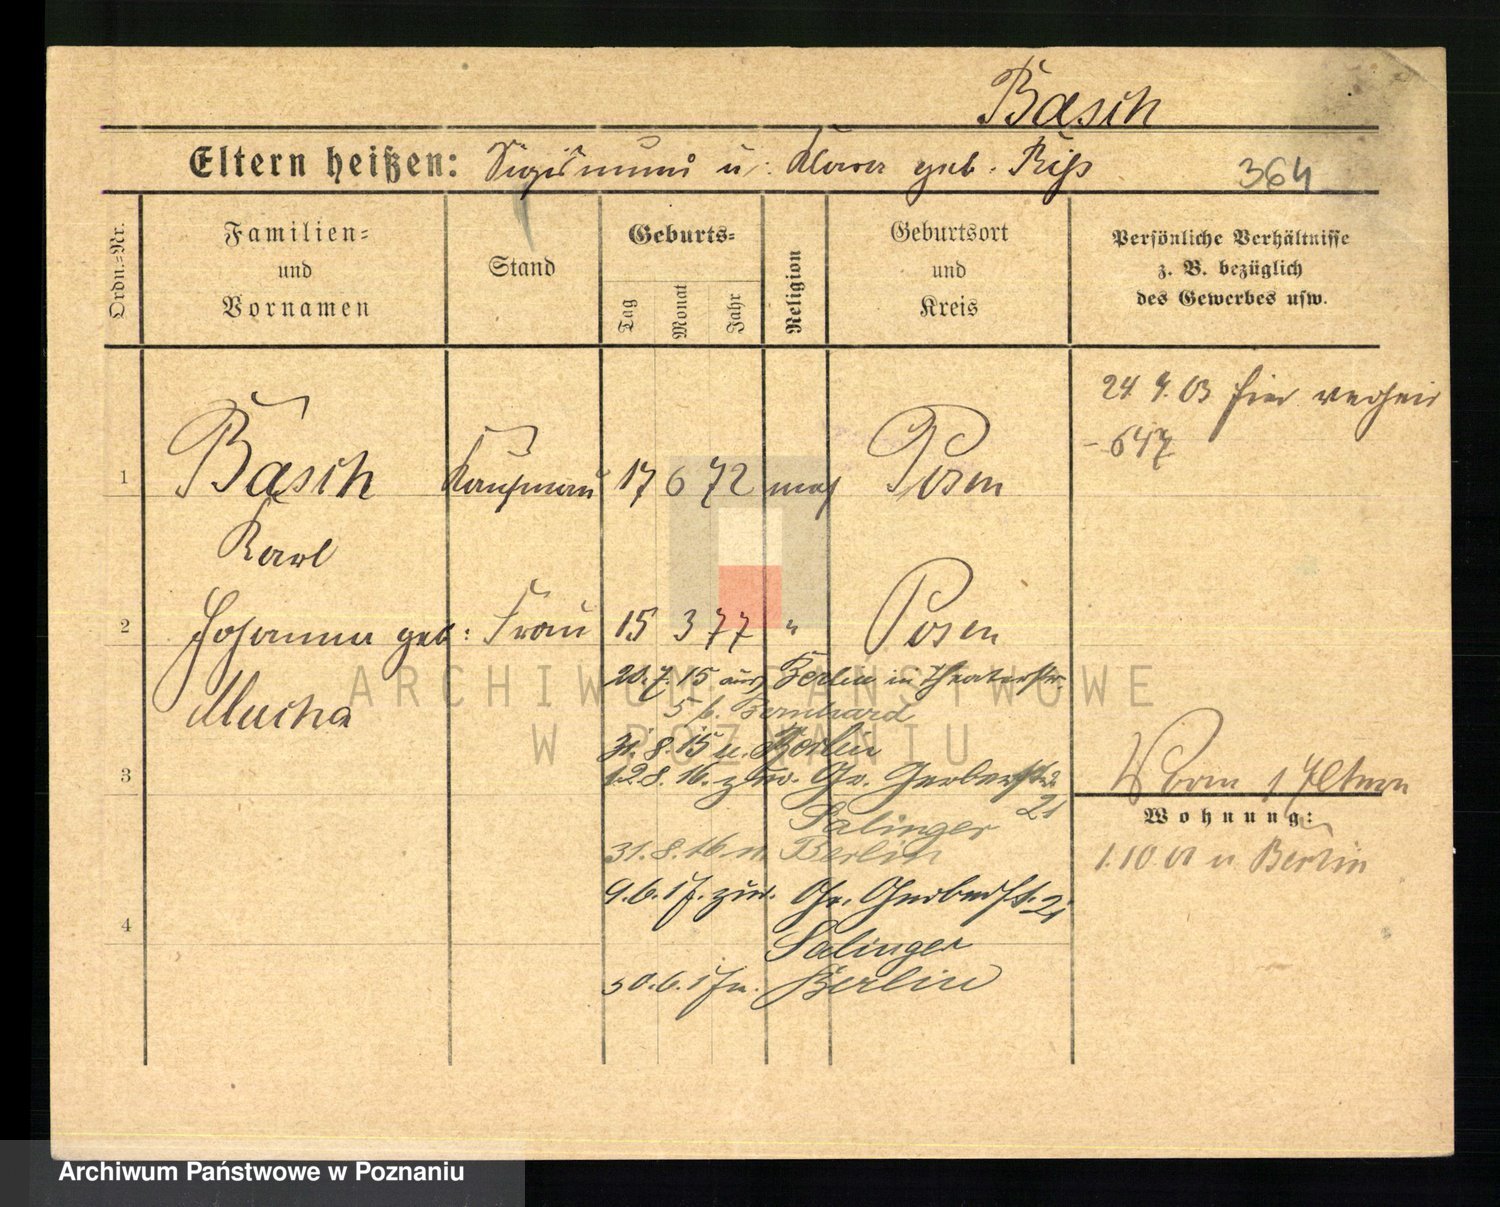 Basch
Eltern heißen: Sigismund u. Klara geb. Riß
364
Ordn.=Nr.
Familien=
und
Vornamen
Stand
Geburts=
Tag
Monat
Jahr
Religion
Geburtsort
und
Kreis
Persönliche Verhältnisse
z. B. bezüglich
des Gewerbes usw.
24. 9. 03 hier verheir
- 647
1 Basch Kaufmann 17 6 72 mos Posen
Karl
2 Johanna geb: Frau 15 3 77 " Posen
Mucha
20. 7. 15 aus Berlin in Theaterstr.
5 b. Bernhard
31. 8. 15 n. Berlin
3 12. 8. 16. zur. Gr. Gerberstr.
21
Salinger
31. 8. 16 n. Berlin
9. 6. 17. zur. Gr. Gerberst. 21
4 Salinger
30. 6. 17 n. Berlin
Eltern
Wohnung:
1. 10 01 n Berlin
ARCHIWUM PAŃSTWOWE
W POZNANIU
Archiwum Państwowe w Poznaniu